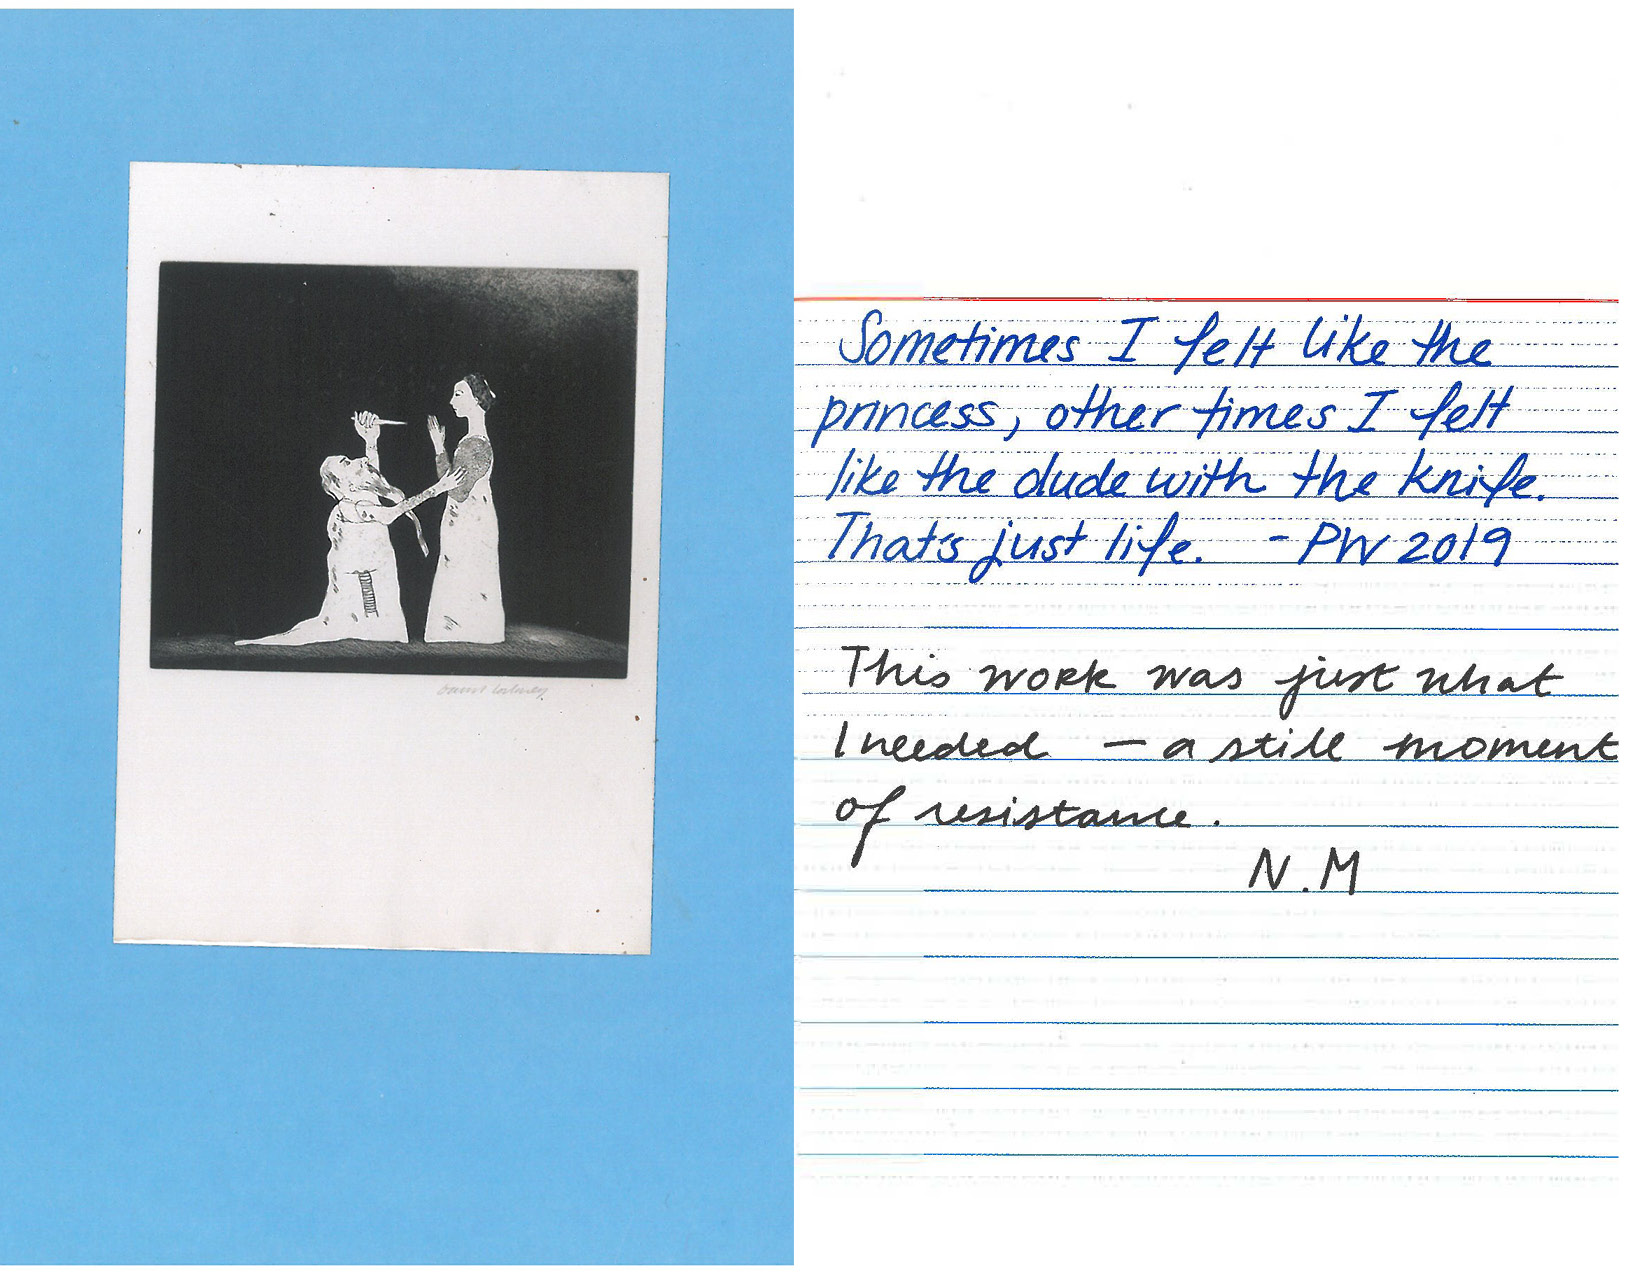 David Hockney
Sometimes I felt like the
princess, other times I felt
like the dude with the knife.
That's just life. - PW 2019
This work was just what
I needed — a still moment
of resistance.
N.M